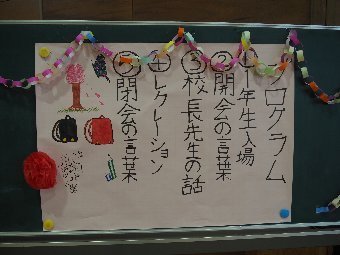 プログラム
①1年生入場
②開会の言葉
③校長先生の話
④レクレーション
⑤閉会の言葉